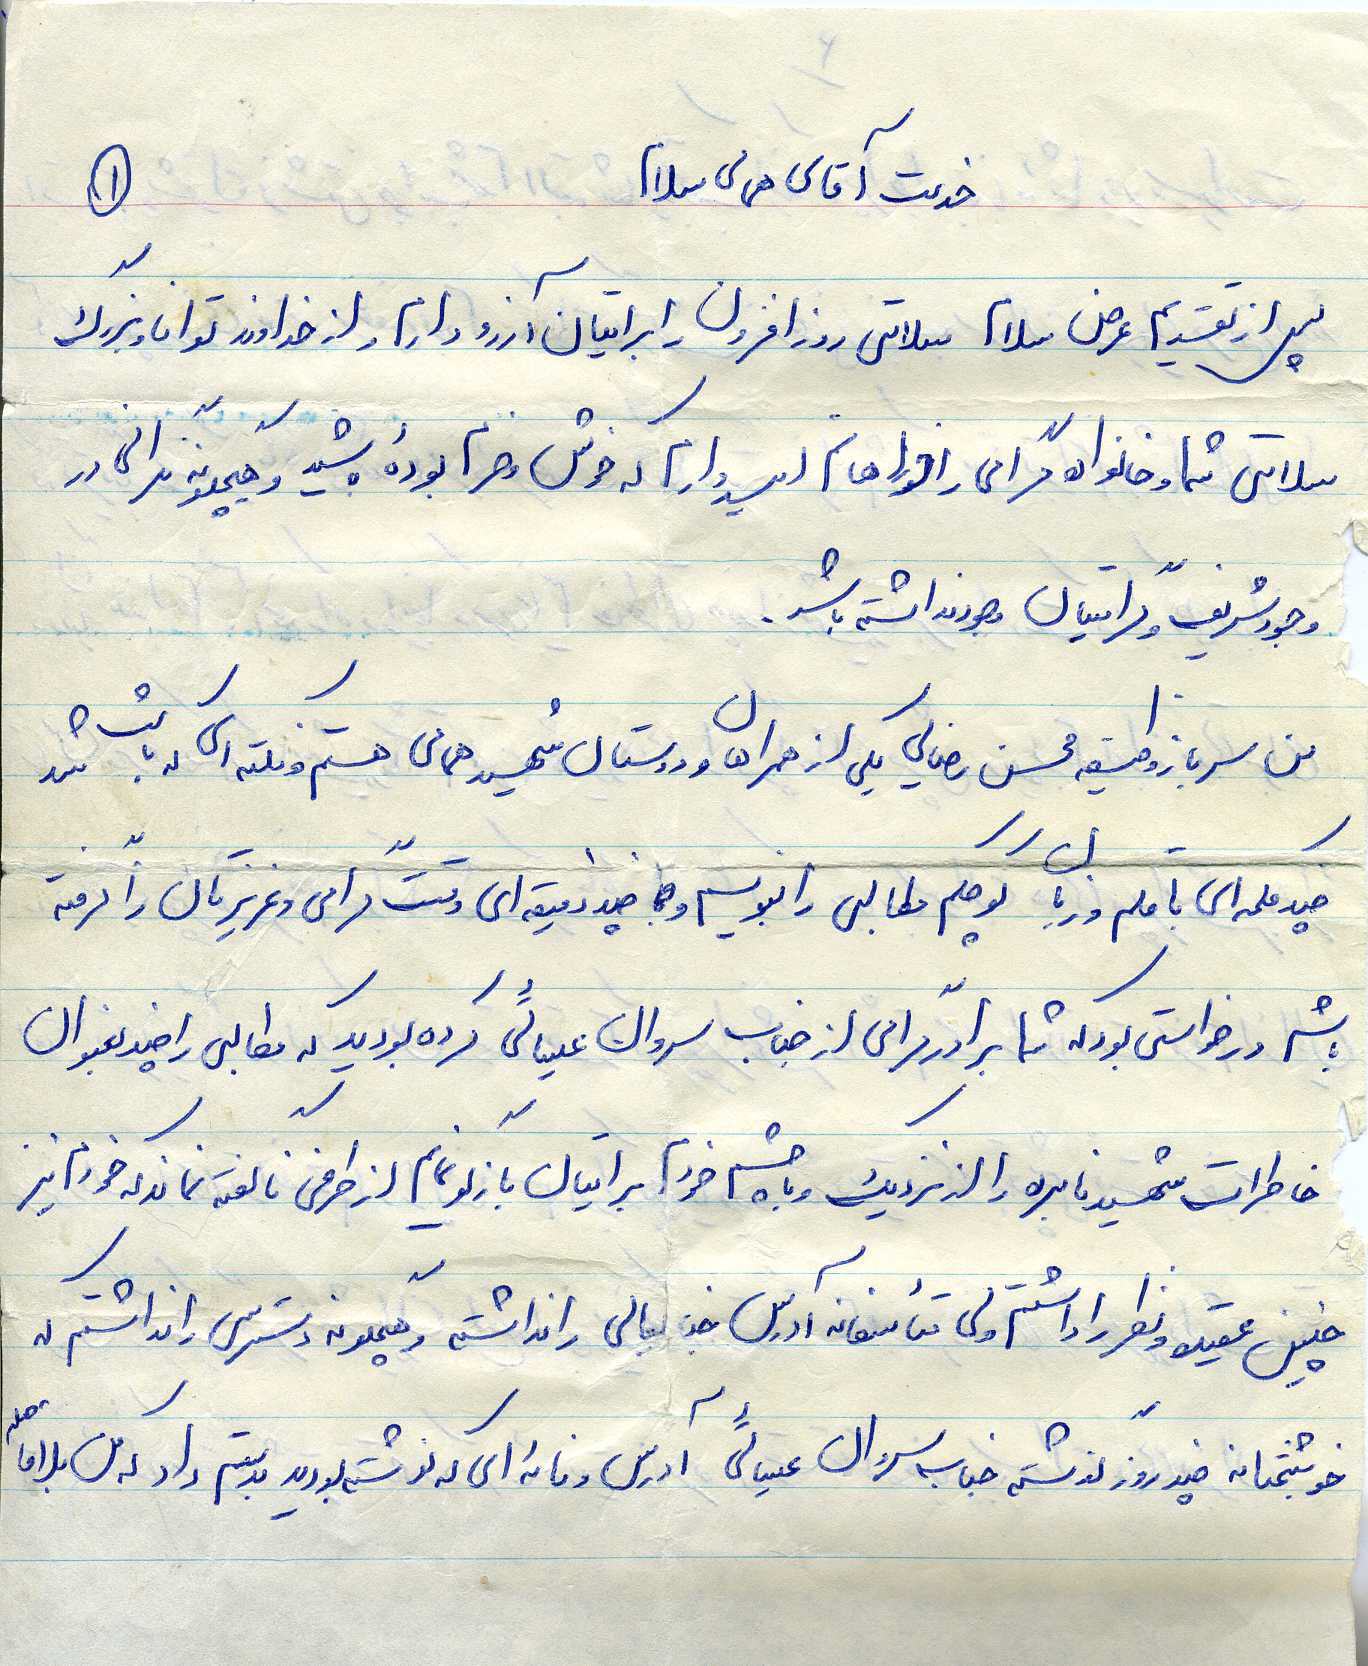 ①
خدمت آقای همائی سلام
پس از تقدیم عرض سلام سلامتی روزافزون را برایتان آرزو دارم و از خداوند توانا و بزرگ
سلامتی شما و خانواده گرامی را خواهانم امیدوارم که خوش و خرم بوده باشید و هیچگونه نگرانی در
وجود شریف و گرامیتان وجود نداشته باشد.
من سرباز وظیفه محسن رضایی یکی از همراهان و دوستان شهید همائی هستم و نکته ای که باعث شد
چند کلمه ای با قلم و زبان کوچکم مطالبی را بنویسم و چند دقیقه ای وقت گرامی و عزیزتان را گرفته
باشم درخواستی بود که شما برادر گرامی از جناب سروان کرده بودید که مطالبی را چند بعنوان
خاطرات شهید نامبرده را از نزدیک و با چشم خودم برایتان بازگو نمایم از طرفی ناگفته نماند که خودم نیز
چنین عقیده و نظر را داشتم ولی متأسفانه آدرس جنابعالی را نداشته و هیچگونه دسترسی را نداشتم که
خوشبختانه چند روز گذشته جناب سروان آدرس و نامه ای که نوشته بودید بدستم داد که من بلافاصله